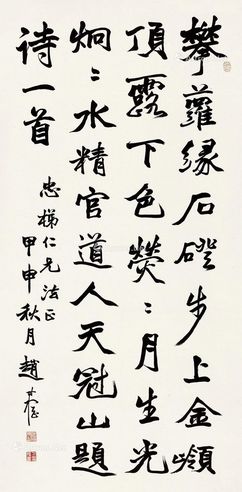 攀蘿緣石磴步上金嶺
頂露下色熒〻月生光
炯〻水精官道人天冠山題
诗一首
忠梯仁兄法正
甲申秋月趙